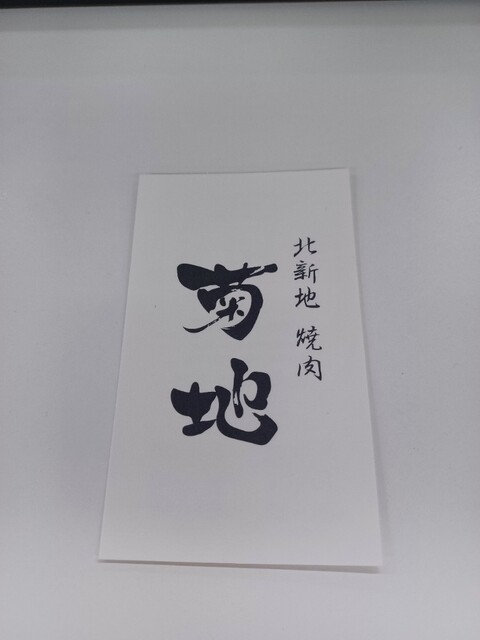 北新地 焼肉
菊地